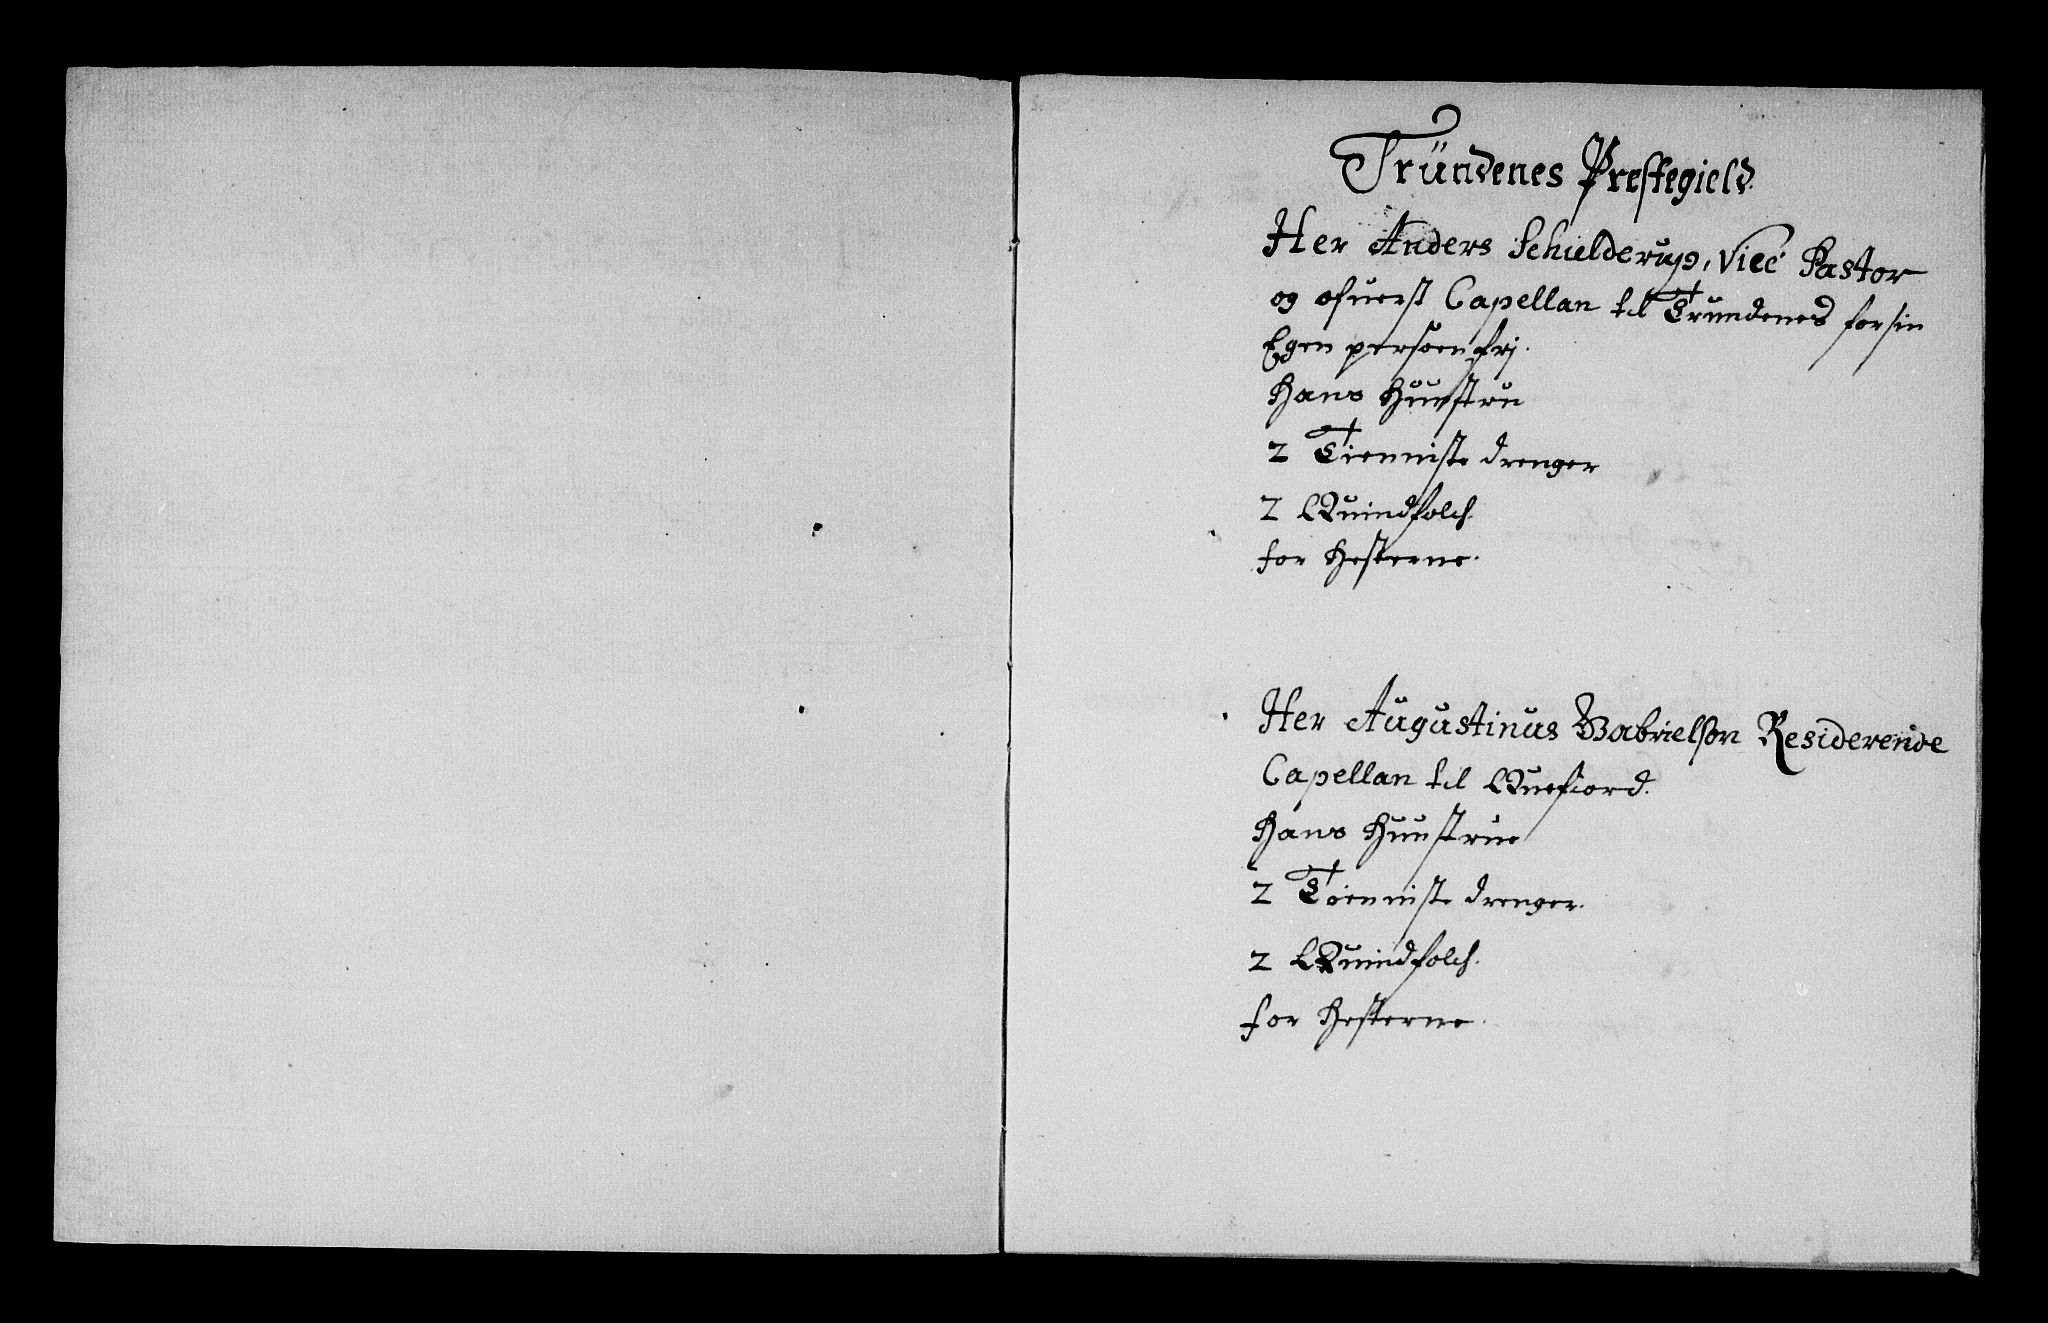 Tründenes Prestegield.
Her Anders Schielderup, Vice Pastor
og øfuerst Capellan til Trundenes for sin
Egen persoen frj.
Hans Hüustrü
2 Tienniste drenger
2 Quindfolch.
for Hesterne.
Her Augustinus Gabrielsøn Residerende
Capellan til Quefiord.
Hans Huustrue
2 Tienniste drenger.
2 Quindfolch.
for Hesterne.